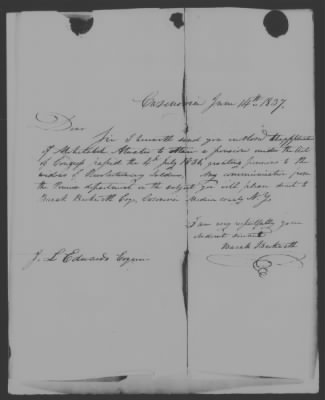 Cazenovia June 14th. 1837.
Dear
Sir I herewith send you enclosed the application
of Mehitabel Atwater to obtain a pension under the Act
of Congress passed the 4th July 1836, granting pensions to the
widows of Revolutionary Soldiers. Any communication from
the Pension department on the subject you will please direct to
Barak Beckwith Esq. Cazenovia Madison County N.Y.
I am very respectfully your
obedient servant
Barak Beckwith
J. L. Edwards Esquire